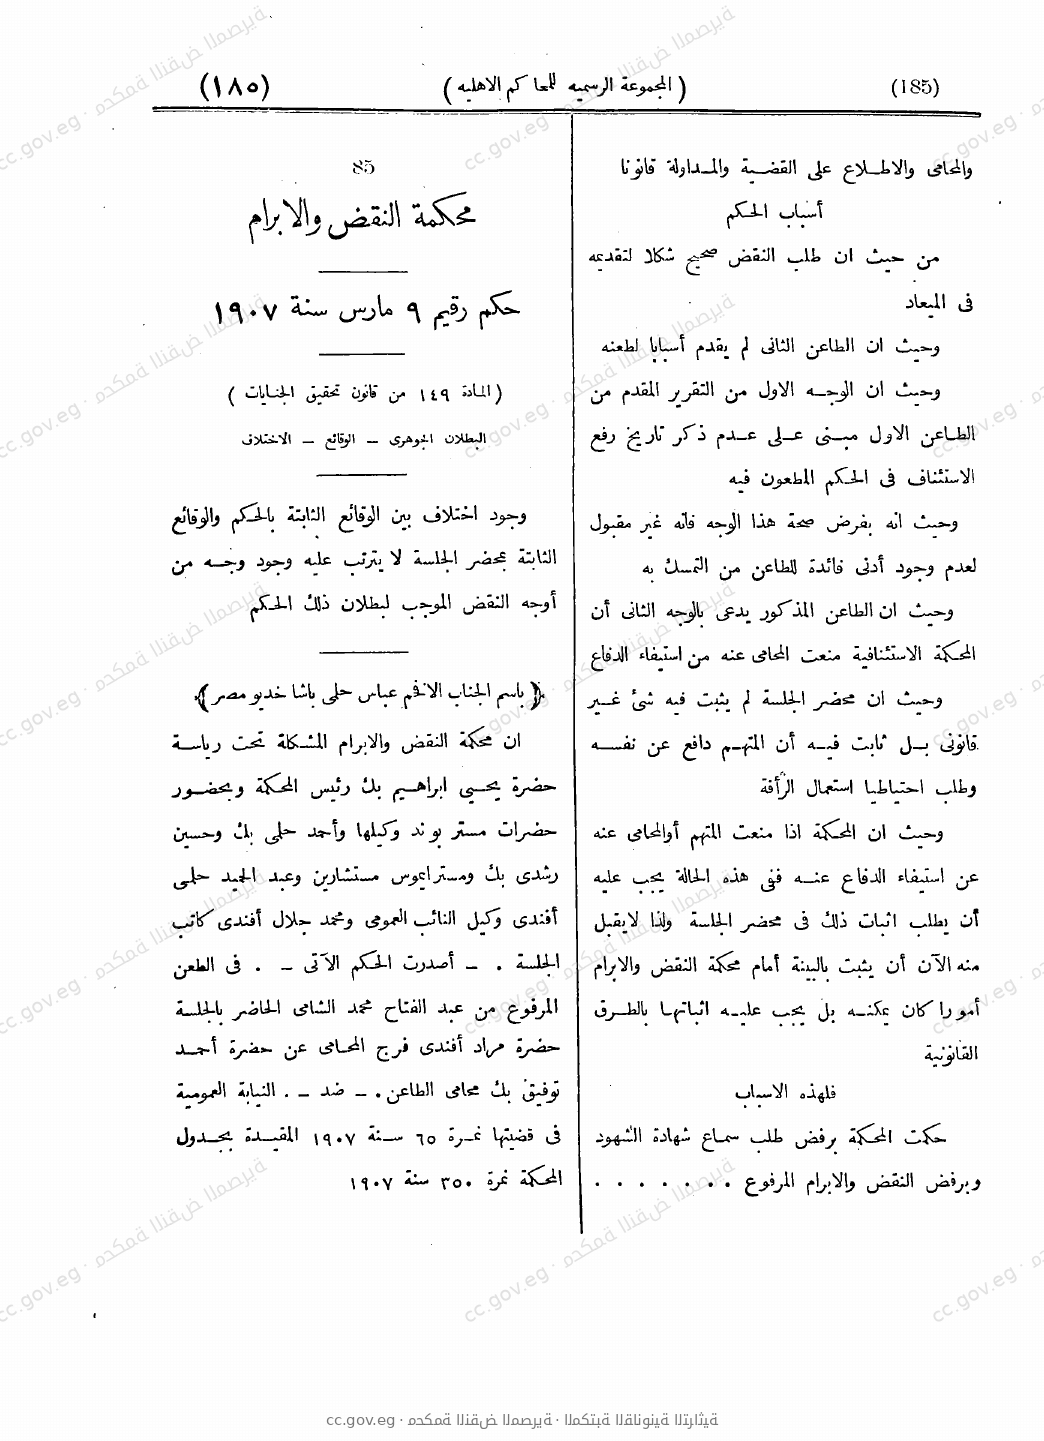 (185)
(المجموعة الرسميه للمحاكم الاهليه)
(١٨٥)
والمحامى والاطلاع على القضية والمداولة قانونا
أسباب الحكم
من حيث ان طلب النقض صحيح شكلا لتقديمه
فى الميعاد
وحيث ان الطاعن الثانى لم يقدم أسبابا لطعنه
وحيث ان الوجه الاول من التقرير المقدم من
الطاعن الاول مبنى على عدم ذكر تاريخ رفع
الاستئناف فى الحكم المطعون فيه
وحيث انه بفرض صحة هذا الوجه فانه غير مقبول
لعدم وجود أدنى فائدة للطاعن من التمسك به
وحيث ان الطاعن المذكور يدعى بالوجه الثانى أن
المحكمة الاستئنافية منعت المحامى عنه من استيفاء الدفاع
وحيث ان محضر الجلسة لم يثبت فيه شئ غير
قانونى بل ثابت فيه أن المتهم دافع عن نفسه
وطلب احتياطيا استعمال الرأفة
وحيث ان المحكمة اذا منعت المتهم أوالمحامى عنه
عن استيفاء الدفاع عنه فنى هذه الحالة يجب عليه
أن يطلب اثبات ذلك فى محضر الجلسة ولذا لايقبل
منه الآن أن يثبت بالبينة أمام محكمة النقض والابرام
أمورا كان يمكنه بل يجب عليه اثباتها بالطرق
القانونية
فلهذه الاسباب
حكمت المحكمة برفض طلب سماع شهادة الشهود
وبرفض النقض والابرام المرفوع . . . . . . .
85
محكمة النقض والابرام
حكم رقيم ٩ مارس سنة ١٩٠٧
(المادة ١٤٩ من قانون تحقيق الجنايات)
البطلان الجوهرى – الوقائع – الاختلاف
وجود اختلاف بين الوقائع الثابتة بالحكم والوقائع
الثابتة بمحضر الجلسة لا يترتب عليه وجود وجه من
أوجه النقض الموجب لبطلان ذلك الحكم
(باسم الجناب الافخم عباس حلمى باشا خديو مصر)
ان محكمة النقض والابرام المشكلة تحت رياسة
حضرة يحيى ابراهيم بك رئيس المحكمة وبحضور
حضرات مستر بوند وكيلها وأحمد حلمى بك وحسين
رشدى بك ومستر ايموس مستشارين وعبد الحميد حلمى
أفندى وكيل النائب العمومى ومحمد جلال أفندى كاتب
الجلسة . – أصدرت الحكم الآتى – . فى الطعن
المرفوع من عبد الفتاح محمد الشامى الحاضر بالجلسة
حضرة مراد أفندى فرج المحامى عن حضرة أحمد
توفيق بك محامى الطاعن . – ضد – . النيابة العمومية
فى قضيتها نمرة ٦٥ سنة ١٩٠٧ المقيدة بجدول
المحكمة نمرة ٣٥٠ سنة ١٩٠٧
cc.gov.eg · محكمة النقض المصرية · المكتبة القانونية التراثية